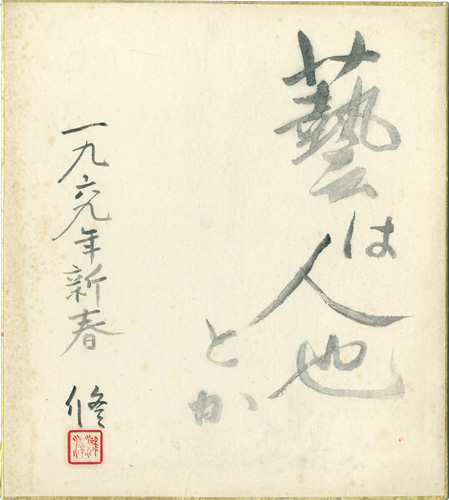 藝は人也
とか
一九六九年新春
修